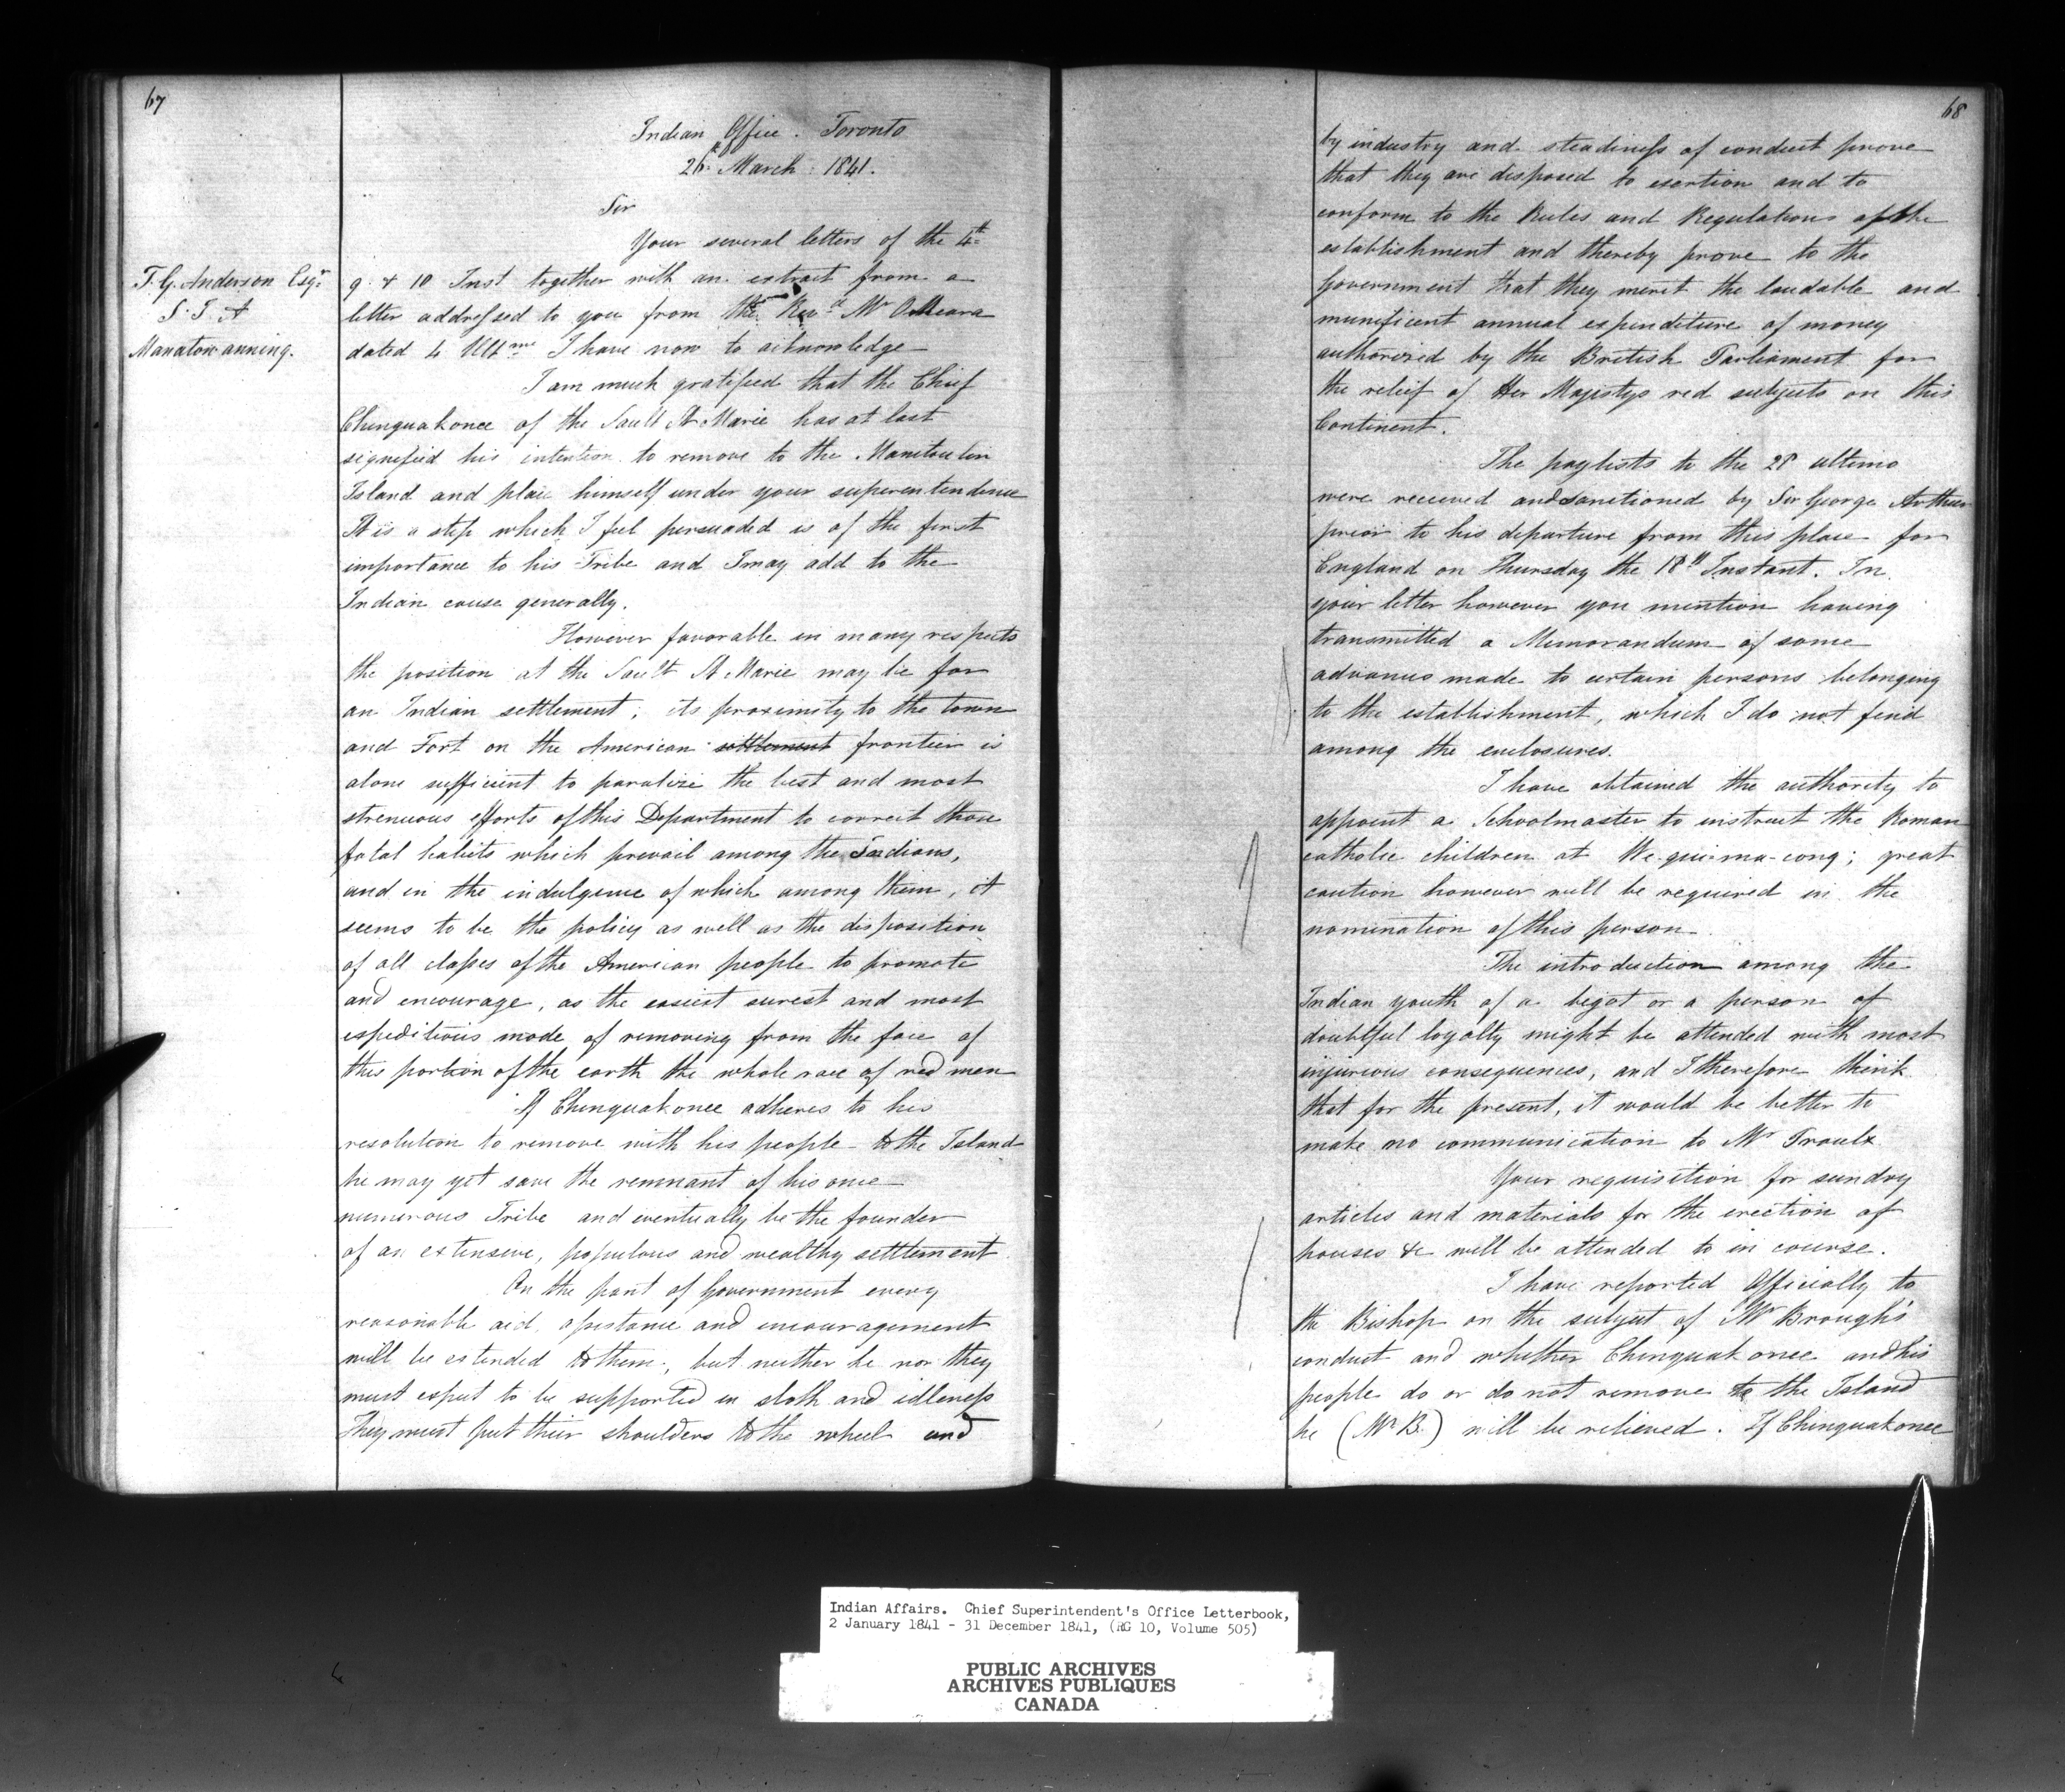 67
Indian Office. Toronto
26th March 1841.
Sir
Your several letters of the 4th
T. G. Anderson Esqr
S. I. A
Manatowanning.
9 & 10 Inst together with an extract from a
letter addressed to you from the Revd Mr OMeara
dated 4 Ultmo I have now to acknowledge
I am much gratified that the Chief
Chinguakonce of the Sault St Marie has at last
signified his intention to remove to the Manitoulin
Island and place himself under your superentendence
It is a step which I feel persuaded is of the first
importance to his Tribe and I may add to the
Indian cause generally.
However favorable in many respects
the position at the Sault St Marie may be for
an Indian settlement; its proximity to the town
and Fort on the American settlement frontier is
alone sufficient to paralize the best and most
strenuous efforts of this Department to correct those
fatal habits which prevail among the Indians,
and in the indulgence of which among them, it
seems to be the policy as well as the disposition
of all classes of the American people to promote
and encourage, as the easiest surest and most
expeditious mode of removing from the face of
this portion of the earth the whole race of red men
If Chinguakonce adheres to his
resolution to remove with his people to the Island
he may yet save the remnant of his once
numerous Tribe and eventually be the founder
of an extensive, populous and wealthy settlement
On the part of Government every
reasonable aid, assistance and encouragement
will be extended to them, but neither he nor they
must expect to be supported in sloth and idleness
They must put their shoulders to the wheel and
68
by industry and steadiness of conduct prove
that they are disposed to exertion and to
conform to the Rules and Regulations of the
establishment and thereby prove to the
Government that they merit the laudable and
munificent annual expenditure of money
authorized by the British Parliament for
the relief of Her Majestys red subjects on this
Continent.
The paylists to the 28 ultimo
were received and sanctioned by Sir George Arthur
prior to his departure from this place for
England on Thursday the 18th Instant. In
your letter however you mention having
transmitted a Memorandum of some
advances made to certain persons belonging
to the establishment, which I do not find
among the enclosures.
I have obtained the authority to
appoint a Schoolmaster to instruct the Roman
catholic children at We-qui-ma-cong; great
caution however will be required in the
nomination of this person.
The introduction among the
Indian youth of a bigot or a person of
doubtful loyalty might be attended with most
injurious consequences, and I therefore think
that for the present, it would be better to
make no communication to Mr
Your requisition for sundry
articles and materials for the erection of
houses &c will be attended to in course.
I have reported Officially to
the Bishop on the subject of Mr Brough's
conduct and whether Chinguakonce and his
people do or do not remove to the Island
he (Mr B.) will be relieved. If Chinguakonce
Indian Affairs. Chief Superintendent's Office Letterbook,
2 January 1841 - 31 December 1841, (RG 10, Volume 505)
PUBLIC ARCHIVES
ARCHIVES PUBLIQUES
CANADA